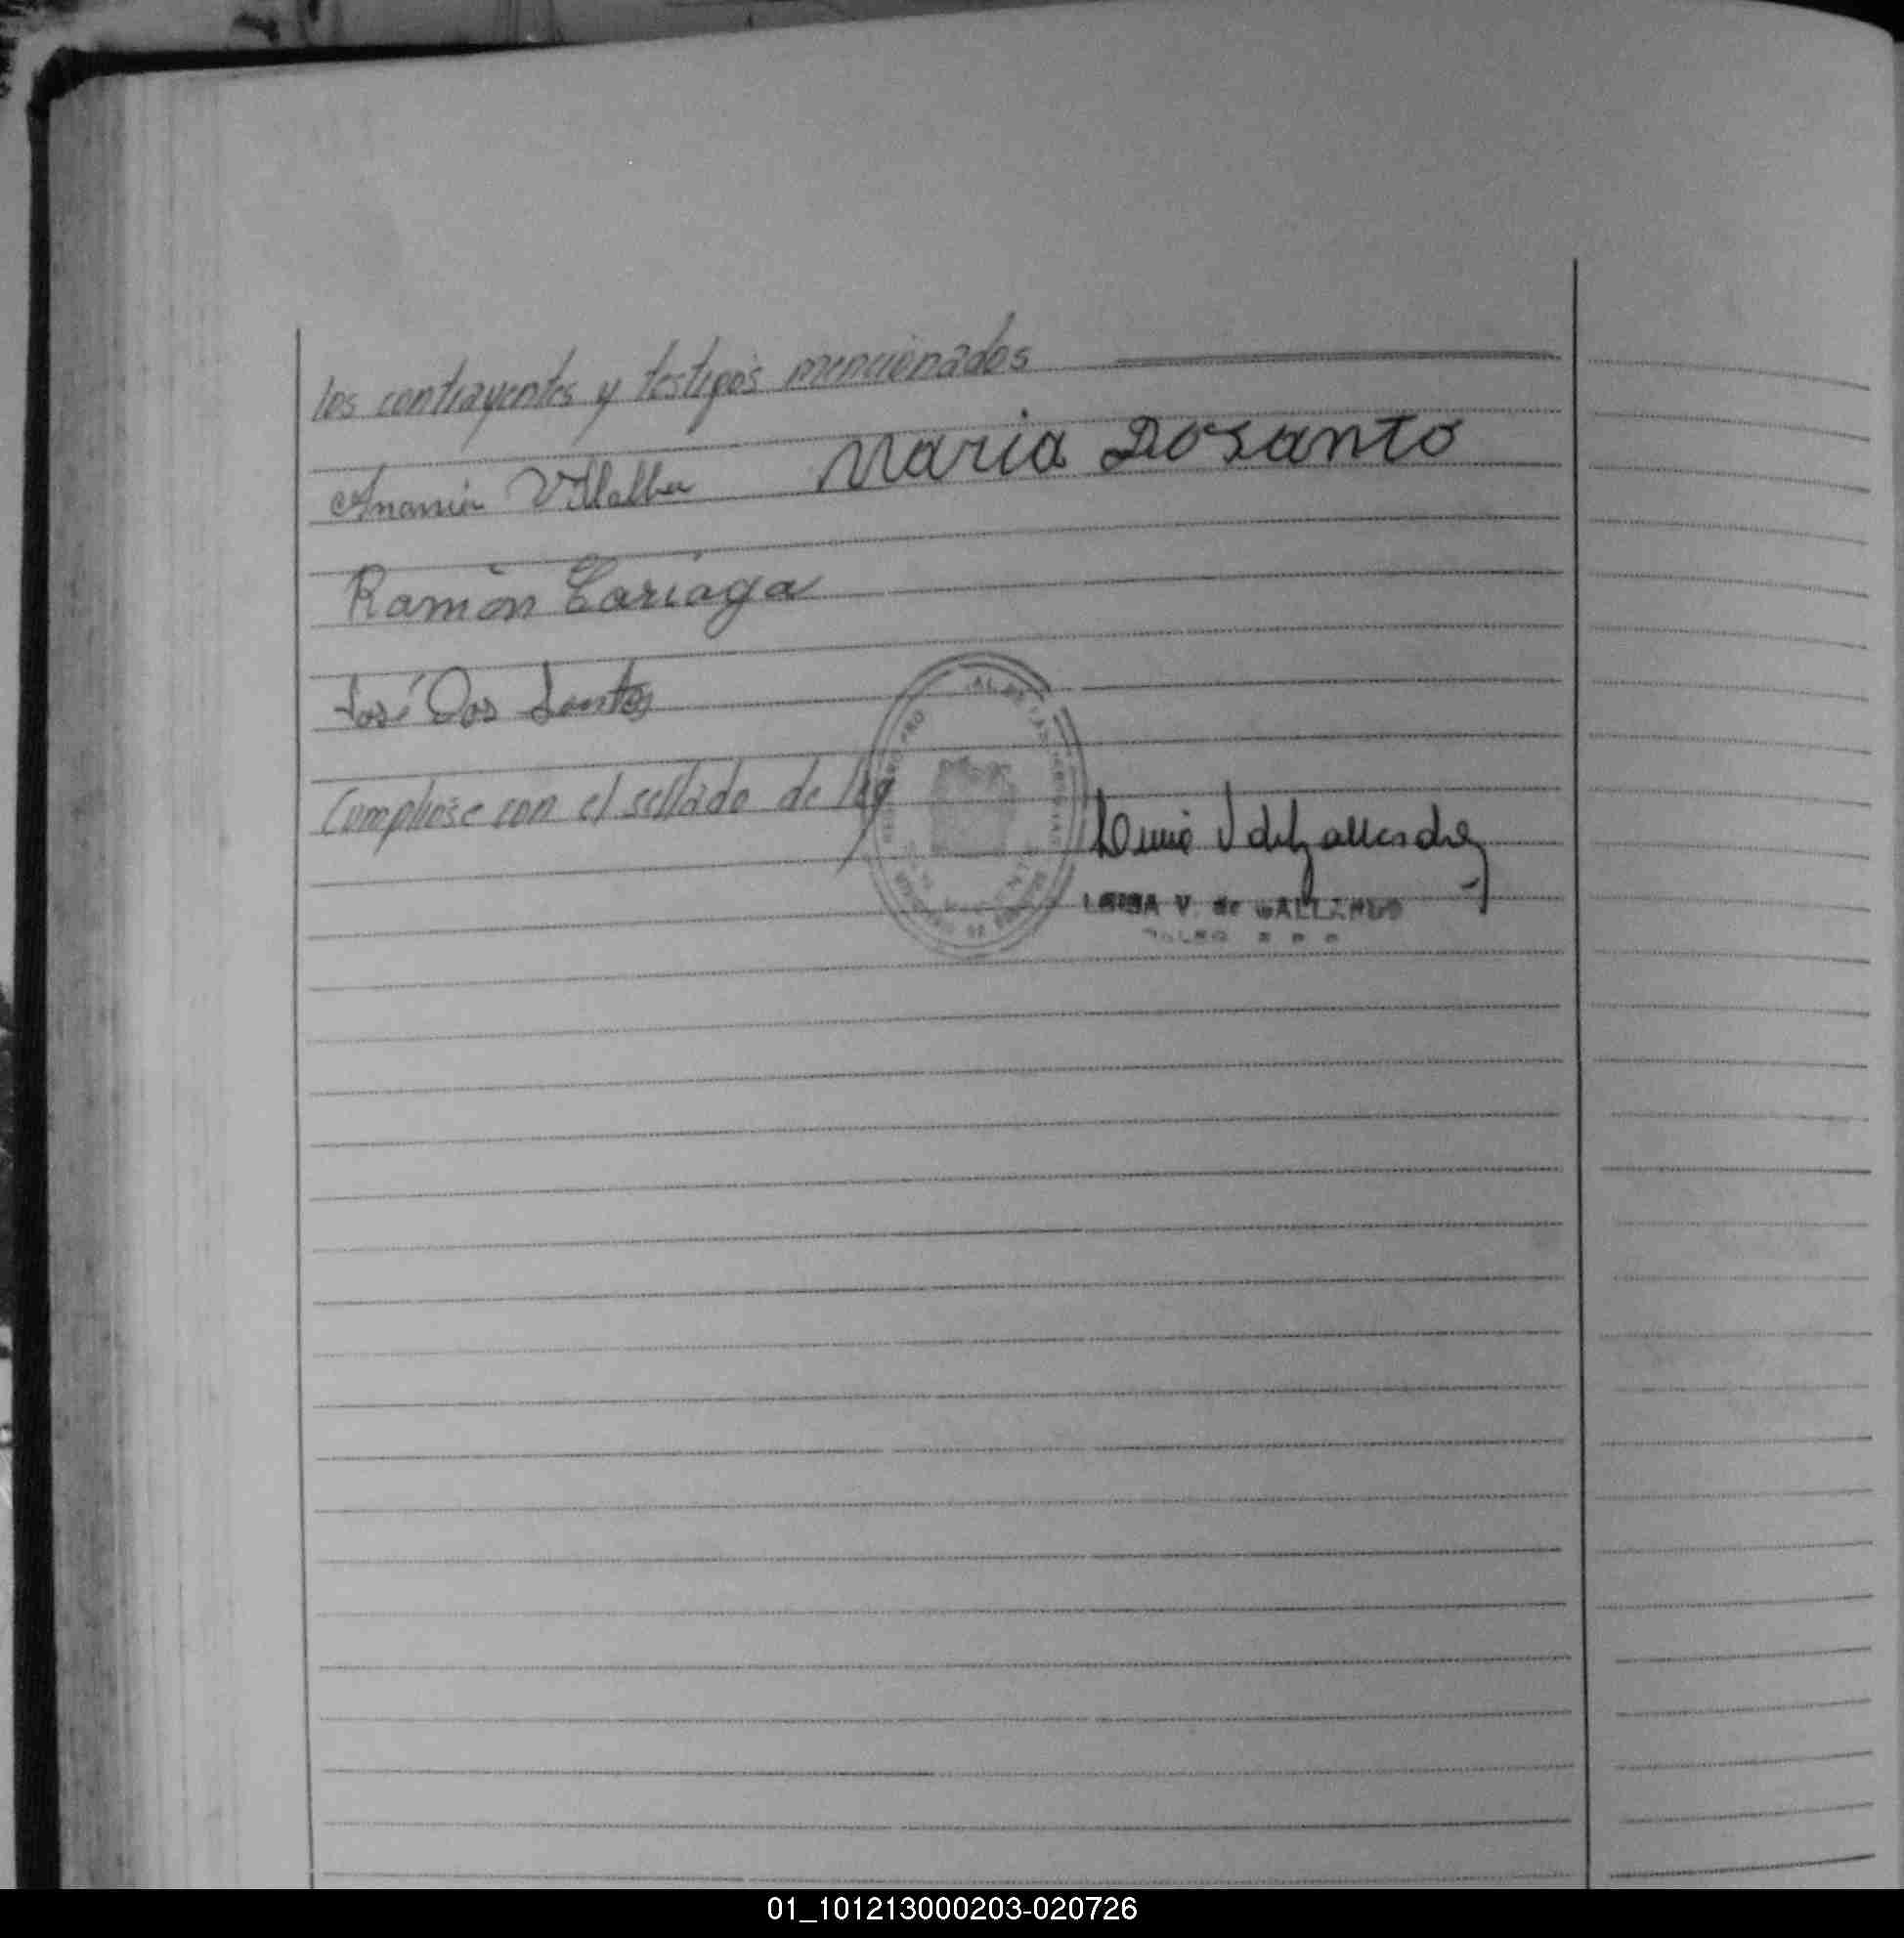 los contrayentes y testigos mencionados
Villalba Maria Dosanto
Ramón Cariaga
José Dos Santos
Cumpliose con el sellado de ley
V. de GALLARDO
01_101213000203-020726